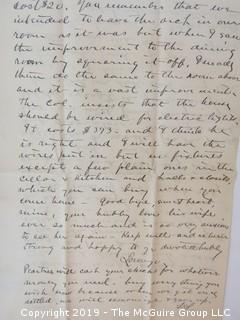 cost $20. You remember that we
intended to have the arch in our
room as it was but when I saw
the improvement to the dining
room by squaring it off, I made
them do the same to the room above
and it is a vast improvement
The Col. insists that the house
should be wired for electric lights.
It costs $373- and I think he
is right and I will have the
wires put in but no fixtures
except a few plain ones in the
cellar, kitchen, halls & closets,
which you can buy when you
come home - Good bye, sweetheart
mine, your hubby loves his wife
ever so much and is so very anxious
to see her again. Keep well and
strong and happy to yr devoted hubby
Lorenzo
will cash your checks for whatever
money you need, buy every thing you
wish
settled, we will
Copyright 2019 - The McGuire Group LLC